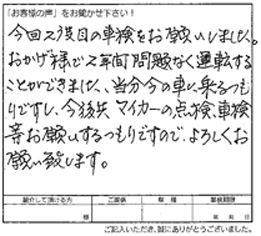 「お客様の声」をお聞かせ下さい！
今回2度目の車検をお願いしました。
おかげ様で2年間問題なく運転する
ことができました、当分今の車に乗るつも
りですし、今後共マイカーの点検、車検
等お願いするつもりですので、よろしくお
願い致します。
紹介して頂ける方 ご関係 車種 車検期限
様 年 月 日
ご記入いただき、誠にありがとうございました。